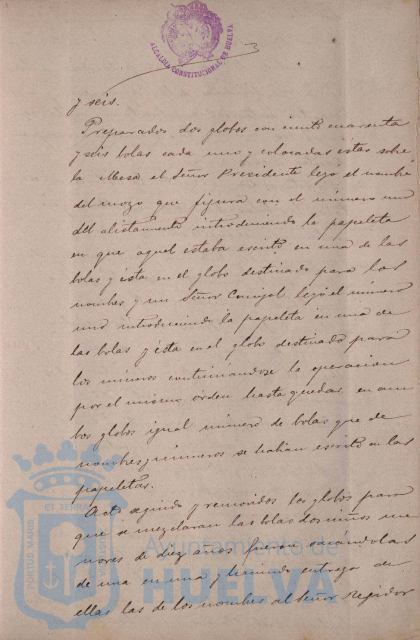 ALCALDIA CONSTITUCIONAL DE HUELVA
y seis.
Preparados dos globos con ciento cuarenta
y seis bolas cada uno y colocadas estas sobre
la Mesa el Señor Presidente leyó el nombre
del mozo que figura con el número uno
del alistamiento introduciendo la papeleta
en que aquel estaba escrito en una de las
bolas y esta en el globo destinado para los
nombres y un Señor Concejal leyó el número
uno introduciendo la papeleta en una de
las bolas y esta en el globo destinado para
los números continuandose la operacion
por el mismo orden hasta quedar en am
bos globos igual número de bolas que de
nombres y números se habian escrito en las
papeletas.
Acto seguido y removidos los globos para
que se mezclaran las bolas dos niños me
nores de diez años fueron sacándolas
de una en una y haciendo entrega de
ellas las de los nombres al Señor Regidor
PORTUS MARIS ET TERRAE
Ayuntamiento de
HUELVA